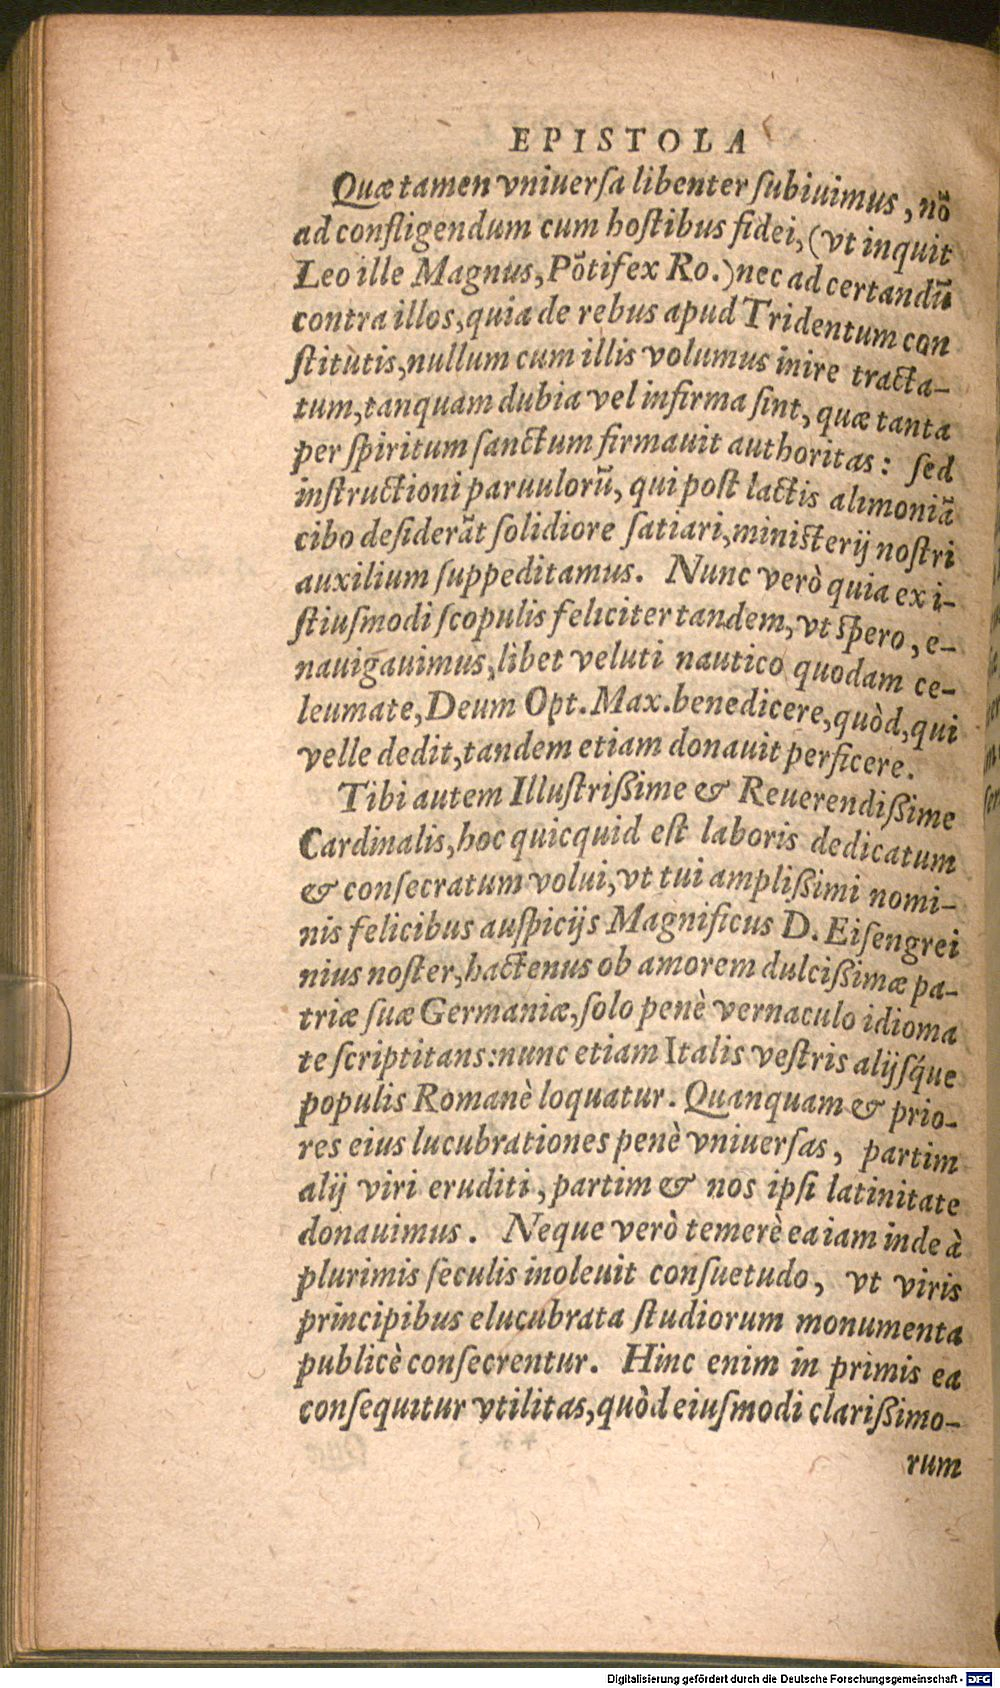 EPISTOLA
Quæ tamen vniuerſa libenter ſubiuimus, nō
ad confligendum cum hoſtibus fidei, (vt inquit
Leo ille Magnus, Pōtifex Ro.) nec ad certandū
contra illos, quia de rebus apud Tridentum con
ſtitutis, nullum cum illis volumus inire tracta-
tum, tanquam dubia vel infirma ſint, quæ tanta
per ſpiritum ſanctum firmauit authoritas: ſed
inſtructioni paruulorū, qui poſt lactis alimoniā
cibo deſiderāt ſolidiore ſatiari, miniſterij noſtri
auxilium ſuppeditamus. Nunc verò quia ex i-
ſtiuſmodi ſcopulis feliciter tandem, vt ſpero, e-
nauigauimus, libet veluti nautico quodam ce-
leumate, Deum Opt. Max. benedicere, quòd, qui
velle dedit, tandem etiam donauit perficere.
Tibi autem Illuſtrißime & Reuerendißime
Cardinalis, hoc quicquid eſt laboris dedicatum
& conſecratum volui, vt tui amplißimi nomi-
nis felicibus auſpicijs Magnificus D. Eiſengrei
nius noſter, hactenus ob amorem dulcißimæ pa-
triæ ſuæ Germaniæ, ſolo penè vernaculo idioma
te ſcriptitans: nunc etiam Italis veſtris alijſq́ue
populis Romanè loquatur. Quanquam & prio-
res eius lucubrationes penè vniuerſas, partim
alij viri eruditi, partim & nos ipſi latinitate
donauimus. Neque verò temerè ea iam inde à
plurimis ſeculis inoleuit conſuetudo, vt viris
principibus elucubrata ſtudiorum monumenta
publicè conſecrentur. Hinc enim in primis ea
conſequitur vtilitas, quòd eiuſmodi clarißimo-
rum
Digitalisierung gefördert durch die Deutsche Forschungsgemeinschaft - DFG